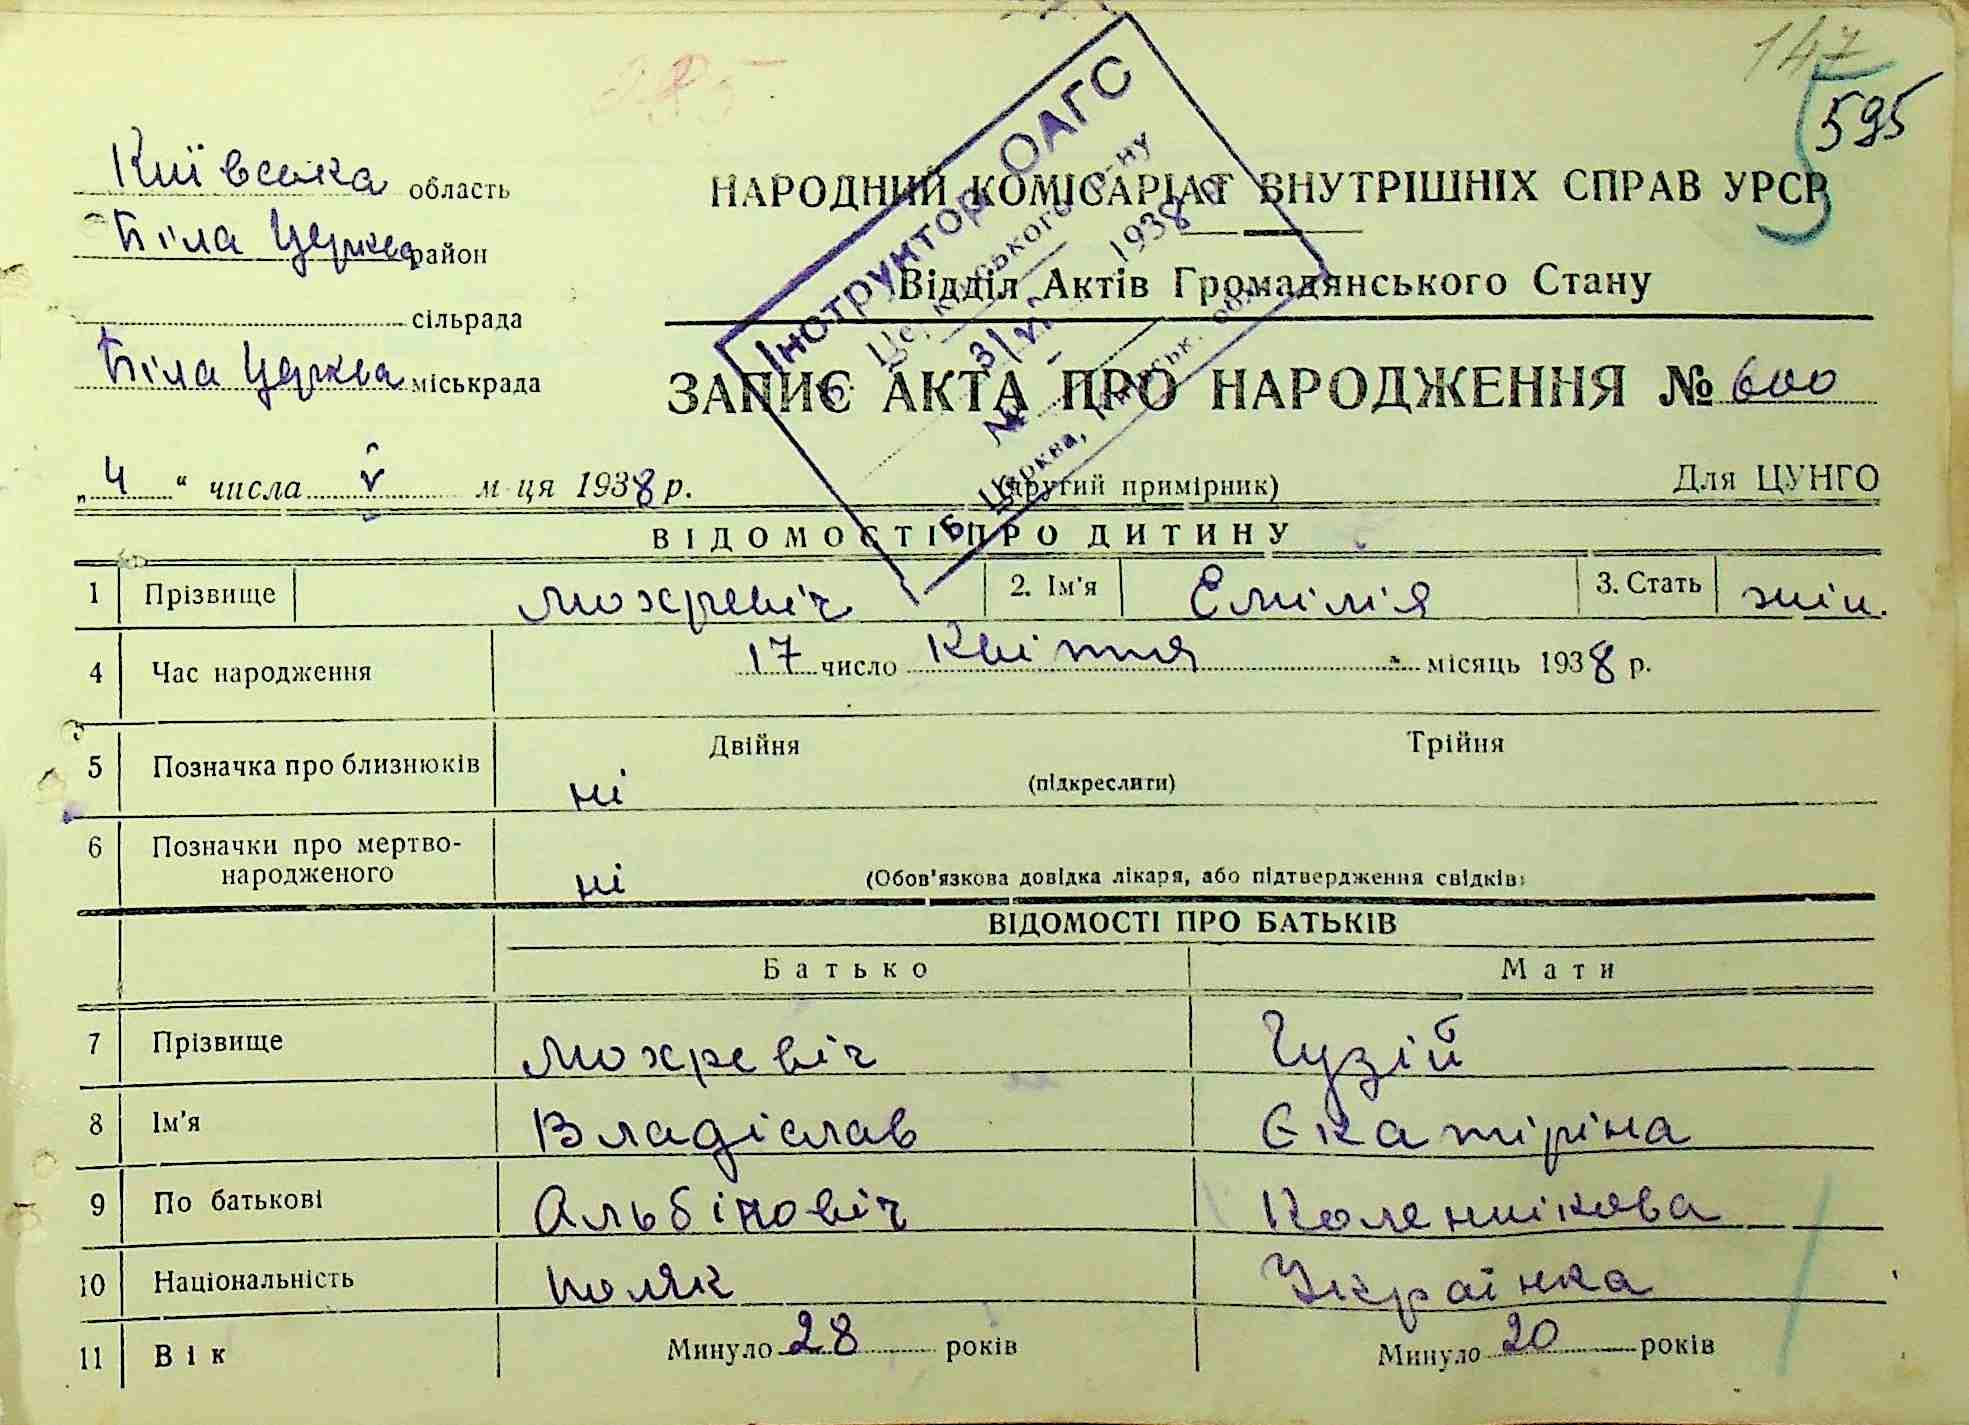 147
595
Київська область
Біла Церква район
сільрада
Біла Церква міськрада
НАРОДНИЙ КОМІСАРІАТ ВНУТРІШНІХ СПРАВ УРСР
Відділ Актів Громадянського Стану
ЗАПИС АКТА ПРО НАРОДЖЕННЯ № 600
Інструктор ОАГС
Б. Церківського р-ну
31/VII 1938 р.
№
Б. Церква, Київськ. обл.
„ 4 “ числа V м-ця 1938 р.
(другий примірник)
Для ЦУНГО
ВІДОМОСТІ ПРО ДИТИНУ
1 Прізвище Мохревіч 2. Ім'я Емілія 3. Стать жін.
4 Час народження 17 число Квітня місяць 1938 р.
5 Позначка про близнюків ні Двійня Трійня
(підкреслити)
6 Позначки про мертво-
народженого ні (Обов'язкова довідка лікаря, або підтвердження свідків)
ВІДОМОСТІ ПРО БАТЬКІВ
Батько Мати
7 Прізвище Мохревіч Гузій
8 Ім'я Владіслав Єкатіріна
9 По батькові Альбінович Коленнікова
10 Національність поляк Українка
11 Вік Минуло 28 років Минуло 20 років